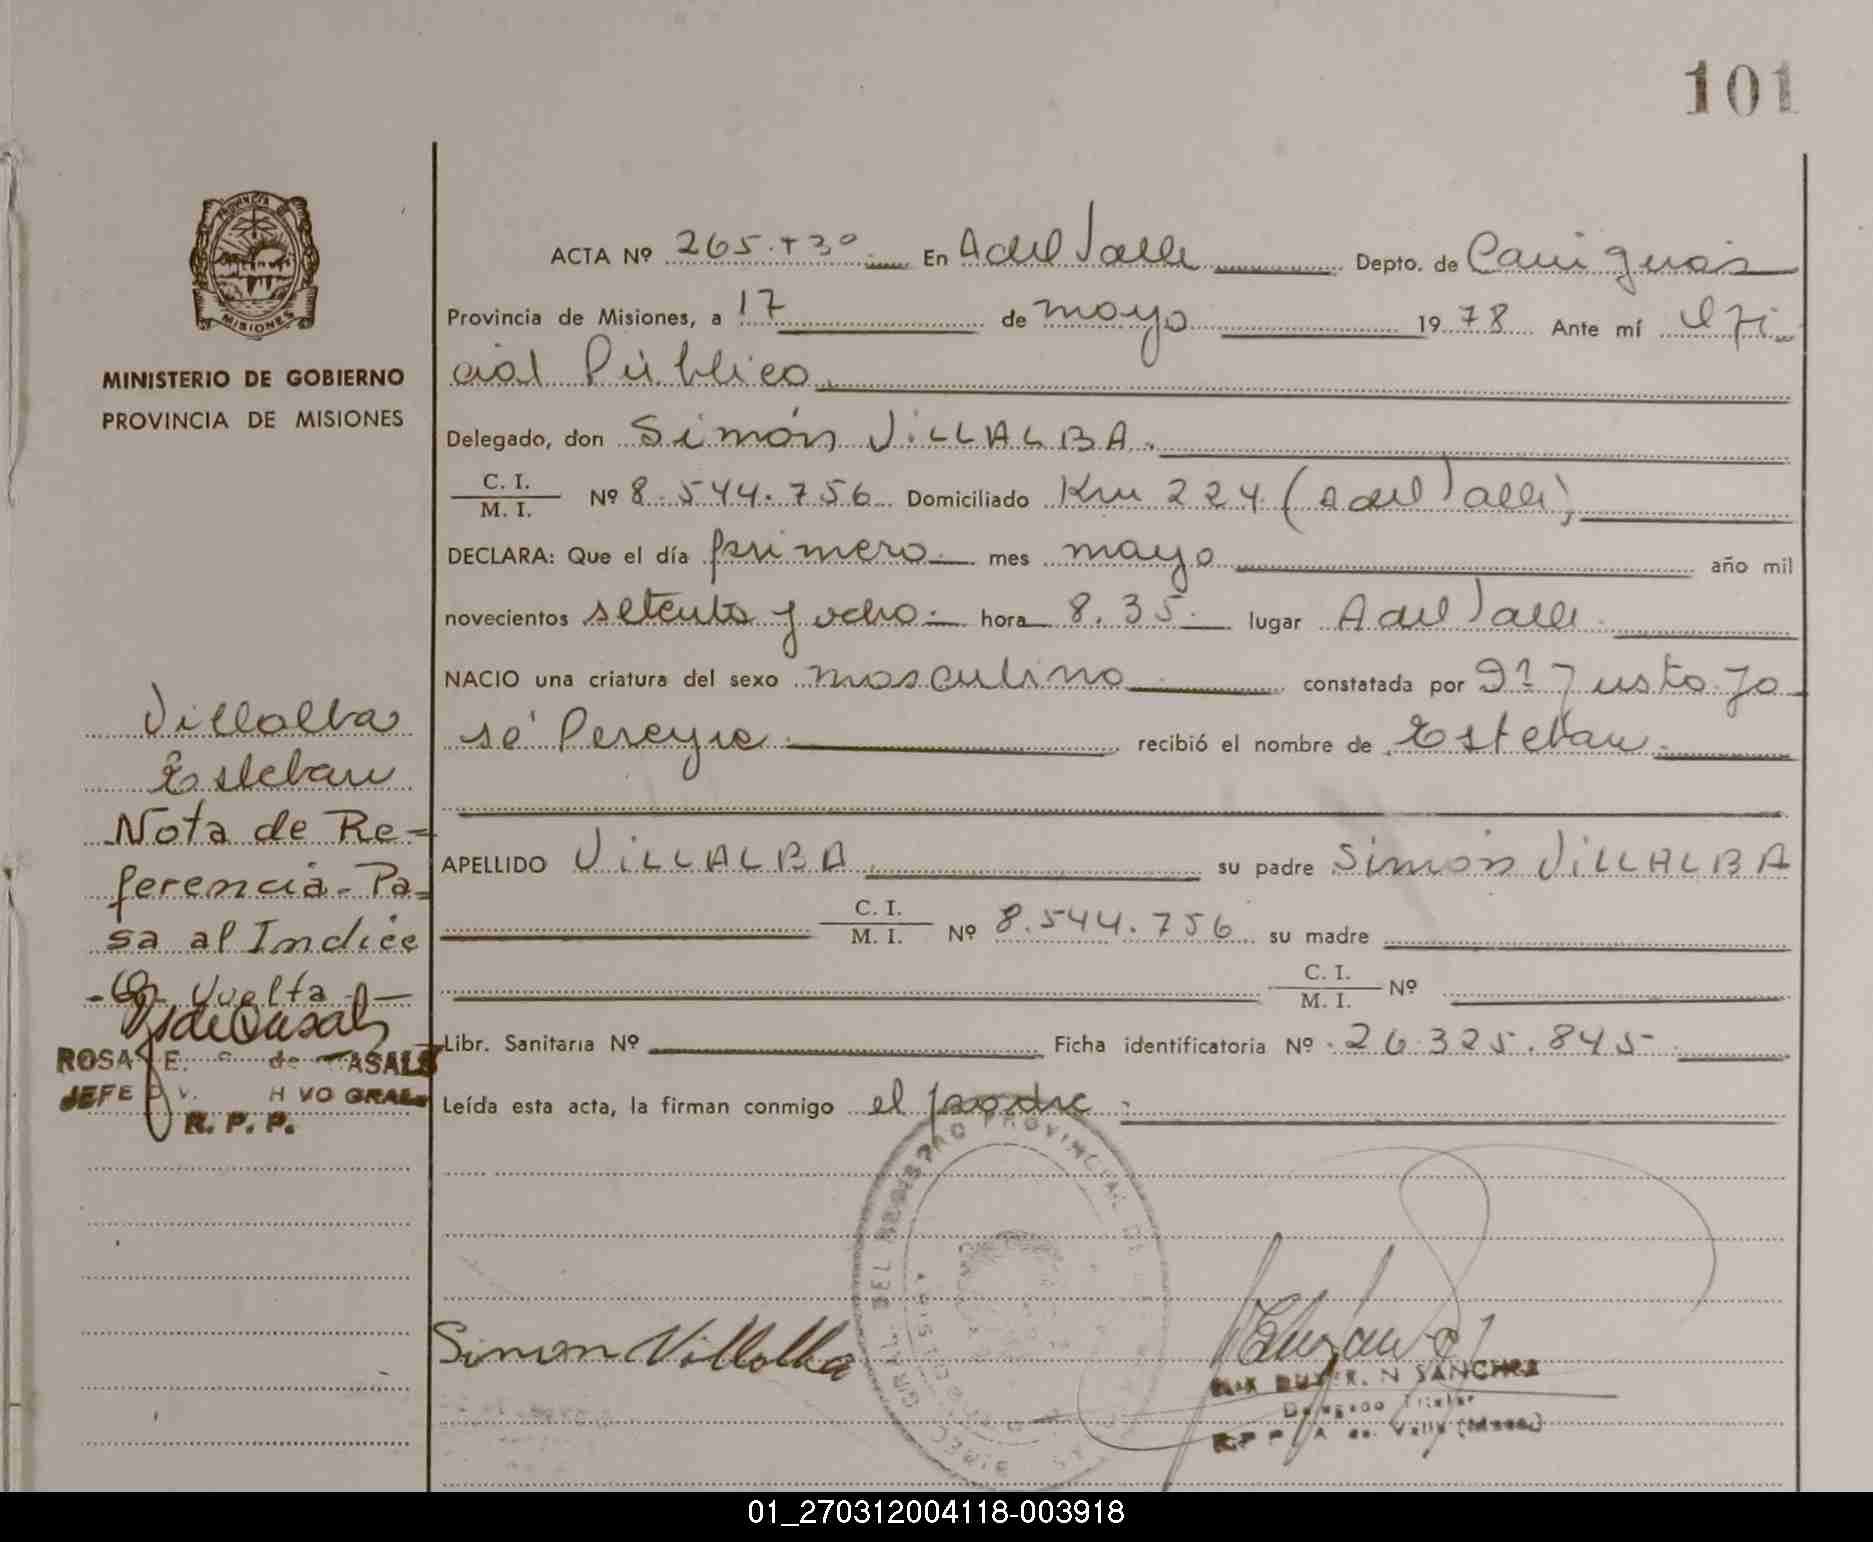 101
PROVINCIA DE
MISIONES
MINISTERIO DE GOBIERNO
PROVINCIA DE MISIONES
ACTA Nº 265.T3º En A del Valle Depto. de Cainguás
Provincia de Misiones, a 17 de mayo 1978 Ante mí Ofi
cial Público.
Delegado, don Simón VILLALBA.
C. I.
M. I. Nº 8.544.756 Domiciliado Km 224 (A del Valle)
DECLARA: Que el día primero mes mayo año mil
novecientos setenta y ocho hora 8.35 lugar A del Valle
NACIO una criatura del sexo masculino constatada por Justo Jo
sé Pereyra recibió el nombre de Esteban.
APELLIDO VILLALBA su padre Simón VILLALBA
C. I.
M. I. Nº 8.544.756 su madre
C. I.
M. I. Nº
Libr. Sanitaria Nº Ficha identificatoria Nº 26.325.845
Leída esta acta, la firman conmigo el padre.
Villalba
Esteban
Nota de Re-
ferencia - Pa-
sa al Indice
Vuelta
ROSA E. de CASALS
JEFE GRAL.
R. P. P.
DEL REGISTRO PROVINCIAL DE
Simon Villalba
SANCHEZ
Delegado Titular
01_270312004118-003918